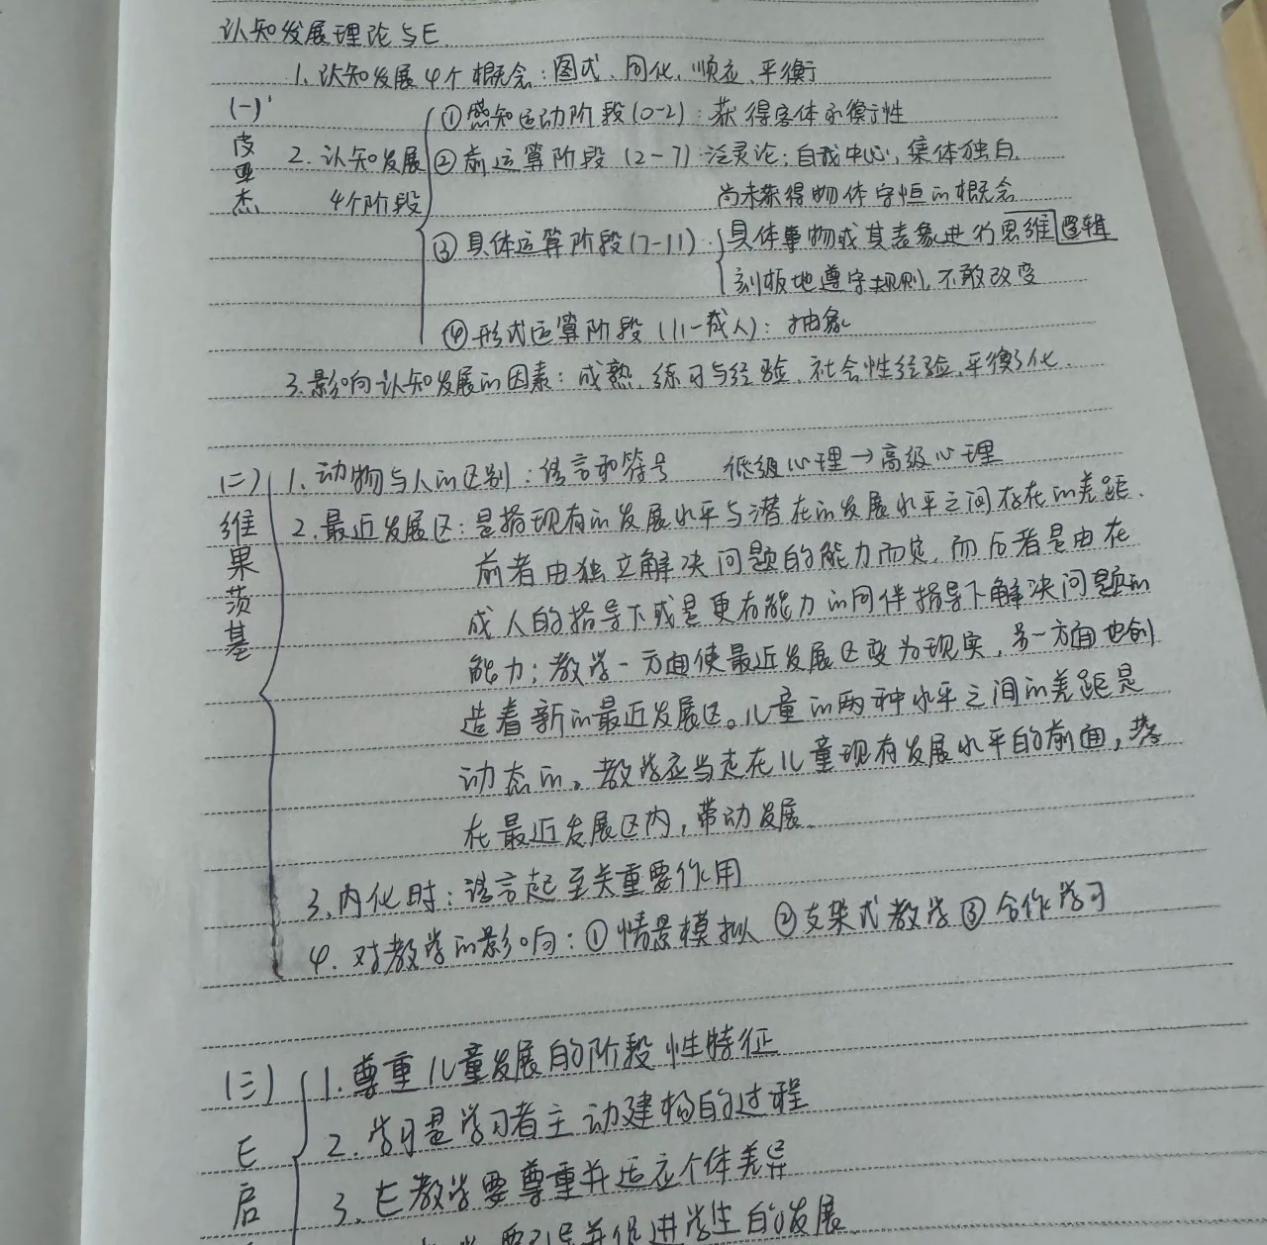 认知发展理论与E.
1. 认知发展4个概念：图式、同化、顺应、平衡
(一) 皮亚杰
2. 认知发展4个阶段
①感知运动阶段(0-2)：获得客体永衡性
②前运算阶段(2-7)：泛灵论；自我中心，集体独白.
尚未获得物体守恒的概念
③具体运算阶段(7-11)：具体事物或其表象进行思维 逻辑
刻板地遵守规则，不敢改变
④形式运算阶段(11-成人)：抽象
3. 影响认知发展的因素：成熟、练习与经验、社会性经验、平衡化.
(二) 维果茨基
1. 动物与人的区别：语言和符号 低级心理→高级心理
2. 最近发展区：是指现有的发展水平与潜在的发展水平之间存在的差距.
前者由独立解决问题的能力而定，而后者是由在
成人的指导下或是更有能力的同伴指导下解决问题的
能力；教学一方面使最近发展区变为现实，另一方面也创
造着新的最近发展区。儿童的两种水平之间的差距是
动态的。教学应当走在儿童现有发展水平的前面，落
在最近发展区内，带动发展.
3. 内化时：语言起至关重要作用
4. 对教学的影响：①情景模拟 ②支架式教学 ③合作学习
(三) E启
1. 尊重儿童发展的阶段性特征
2. 学习是学习者主动建构的过程
3. E教学要尊重并适应个体差异
要引导并促进学生的发展